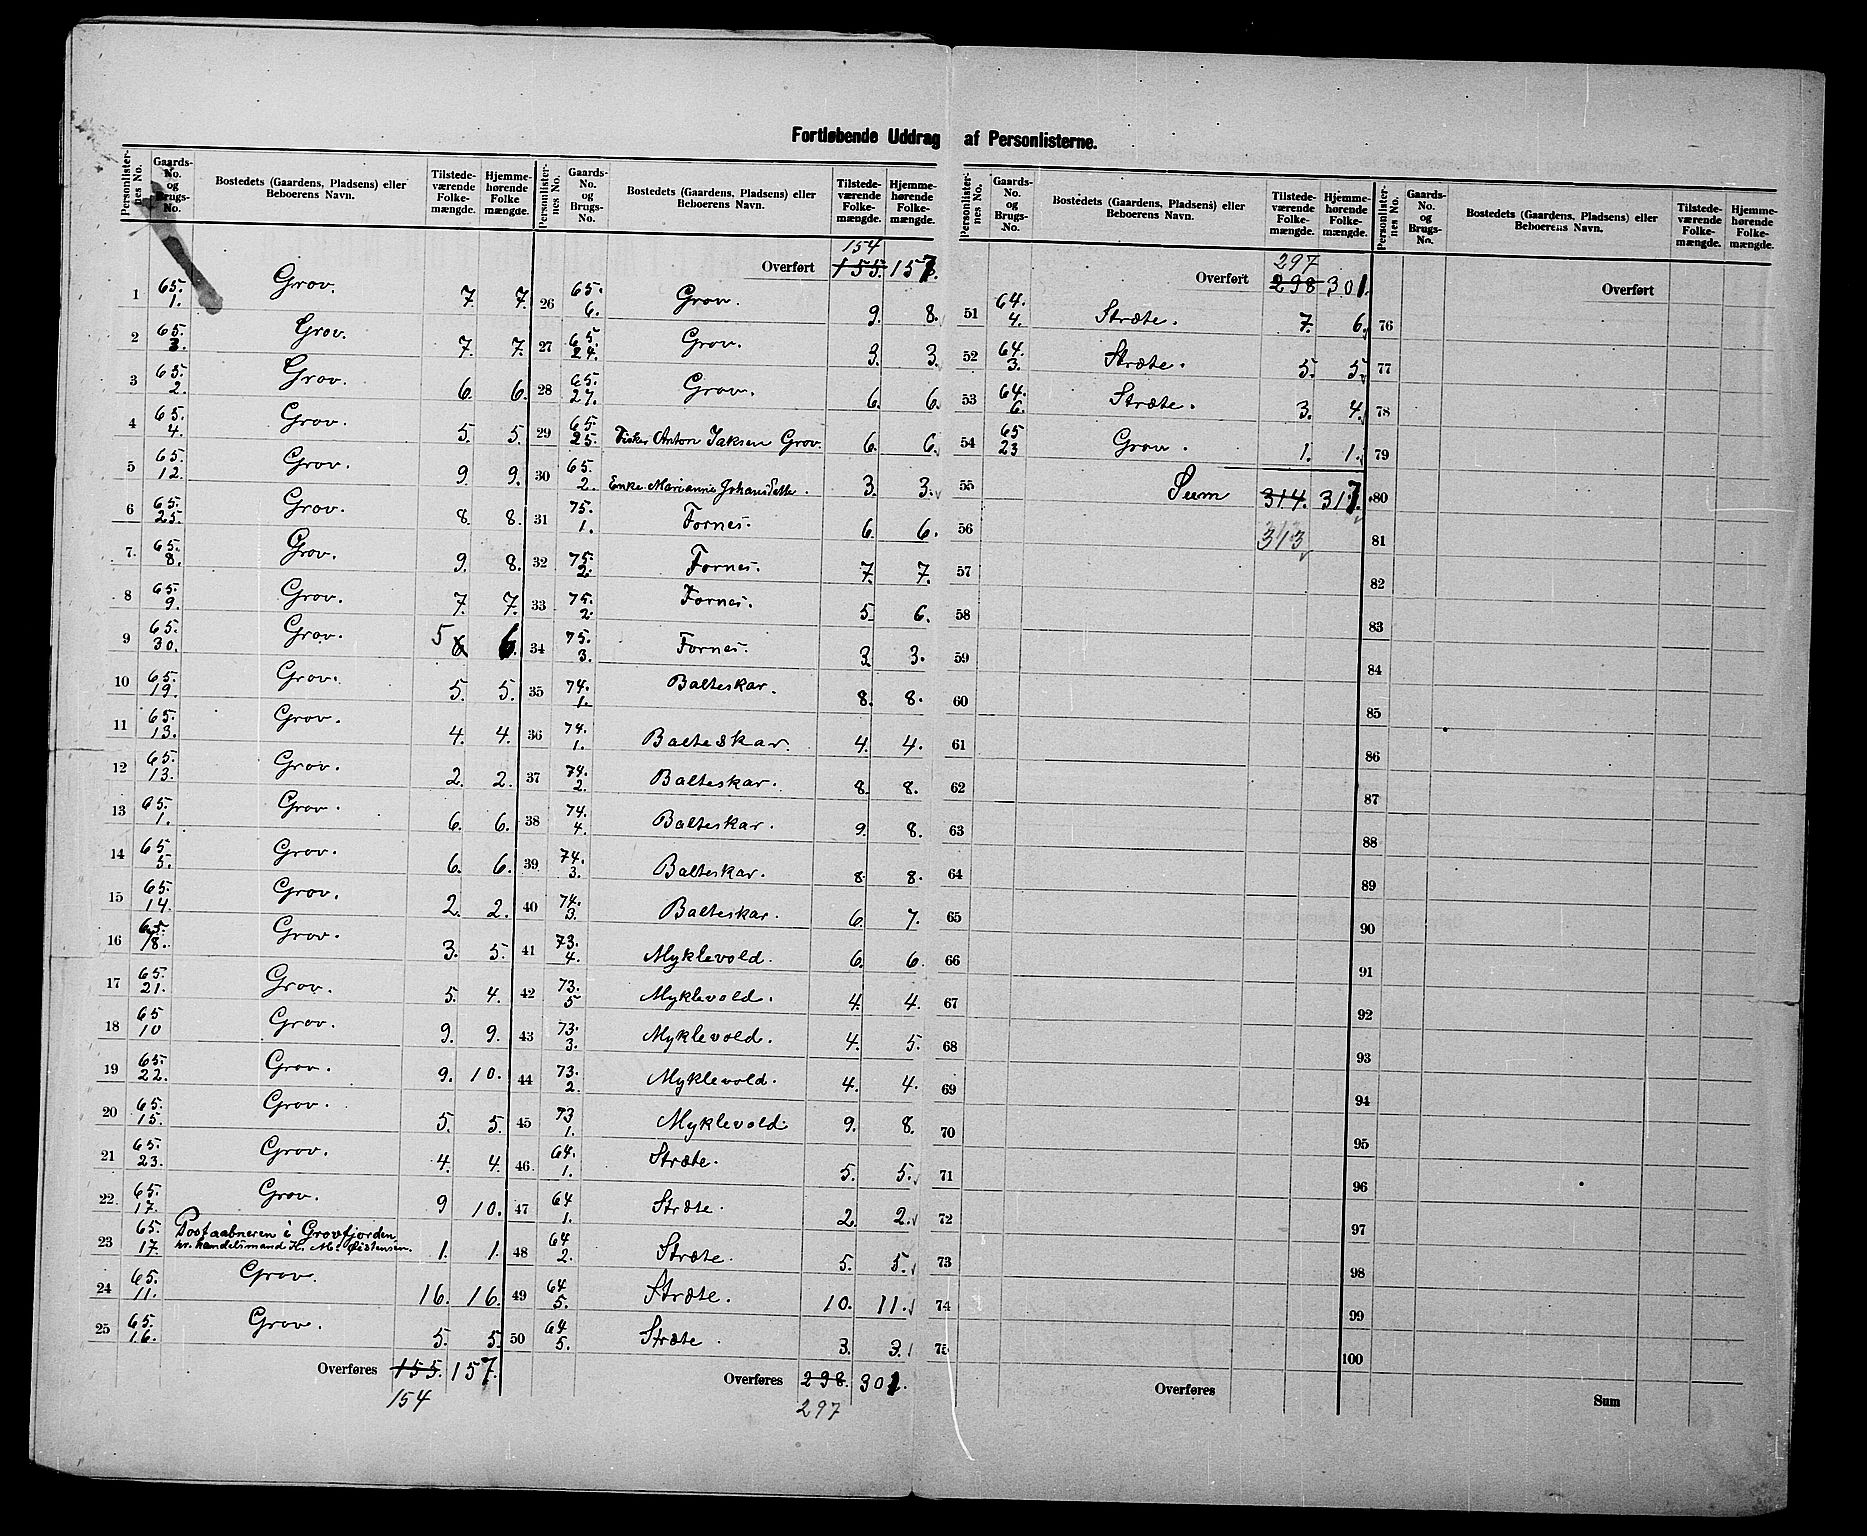 Fortløbende Uddrag af Personlisterne.
Personlister-nes No. | Gaards-No. og Brugs-No. | Bostedets (Gaardens, Pladsens) eller Beboerens Navn. | Tilstede-værende Folke-mængde. | Hjemme-hørende Folke mængde.
1 | 65. 1. | Grov. | 7. | 7.
2 | 65. 3. | Grov. | 7. | 7.
3 | 65. 2. | Grov. | 6. | 6.
4 | 65. 4. | Grov. | 5. | 5.
5 | 65. 12. | Grov. | 9. | 9.
6 | 65. 25. | Grov. | 8. | 8.
7. | 65. 8. | Grov. | 9. | 8.
8 | 65. 9. | Grov. | 7. | 7.
9 | 65. 30. | Grov. | 5 6 | 6.
10 | 65. 19. | Grov. | 5. | 5.
11 | 65. 13. | Grov. | 4. | 4.
12 | 65. 13. | Grov. | 2. | 2.
13 | 65. 1. | Grov. | 6. | 6.
14 | 65. 5. | Grov. | 6. | 6.
15 | 65. 14. | Grov. | 2. | 2.
16 | 65. 18. | Grov. | 3. | 5.
17 | 65. 21. | Grov. | 5. | 4.
18 | 65 10 | Grov. | 9. | 9.
19 | 65. 22. | Grov. | 9. | 10.
20 | 65. 15. | Grov. | 5. | 5.
21 | 65. 23. | Grov. | 4. | 4.
22 | 65. 17. | Grov. | 9 | 10.
23 | 65. 17. | Postaabneren i Grovfjorden hr. handelsmand K. M. Øistensen. | 1. | 1.
24 | 65. 11. | Grov. | 16. | 16.
25 | 65. 16. | Grov. | 5. | 5.
Overføres | 155. | 157.
154
Personlister-nes No. | Gaards-No. og Brugs-No. | Bostedets (Gaardens, Pladsens) eller Beboerens Navn. | Tilstede-værende Folke-mængde. | Hjemme-hørende Folke-mængde.
154
Overført | 155. | 157.
26 | 65. 6. | Grov. | 9. | 8.
27 | 65. 24. | Grov. | 3. | 3.
28 | 65. 27. | Grov. | 6. | 6.
29 | 65. 25. | Fisker Anton Isaksen Grov. | 6. | 6.
30 | 65. 2. | Enke Marianne Johansdatte. | 3. | 3.
31 | 75. 1. | Fornes. | 6. | 6.
32 | 75. 2. | Fornes. | 7. | 7.
33 | 75. 2. | Fornes. | 5. | 6.
34 | 75. 3. | Fornes. | 3. | 3.
35 | 74. 1. | Balteskar. | 8. | 8.
36 | 74. 1. | Balteskar. | 4. | 4.
37 | 74. 2. | Balteskar. | 8. | 8.
38 | 74. 4. | Balteskar. | 9. | 8.
39 | 74. 3. | Balteskar. | 8. | 8.
40 | 74. 3. | Balteskar. | 6. | 7.
41 | 73. 4. | Myklevold. | 6. | 6.
42 | 73. 5 | Myklevold. | 4. | 4.
43 | 73. 3. | Myklevold. | 4. | 5.
44 | 73. 2. | Myklevold. | 4. | 4.
45 | 73 1. | Myklevold. | 9. | 8.
46. | 64. 1. | Stræte. | 5. | 5.
47 | 64 1. | Stræte. | 2. | 2.
48 | 64 2. | Stræte. | 5. | 5.
49 | 64 5. | Stræte. | 10. | 11.
50 | 64 5. | Stræte. | 3. | 3.
Overføres | 298. | 301.
297
Personlister-nes No. | Gaards-No. og Brugs-No. | Bostedets (Gaardens, Pladsens) eller Beboerens Navn. | Tilstede-værende Folke-mængde. | Hjemme-hørende Folke-mængde.
297
Overført | 298 | 301.
51 | 64. 4. | Stræte. | 7. | 6.
52 | 64. 3. | Stræte. | 5. | 5.
53 | 64. 6. | Stræte. | 3. | 4.
54 | 65 23 | Grov. | 1. | 1.
55 | Sum | 314. | 317.
56 | 313
57
58
59
60
61
62
63
64
65
66
67
68
69
70
71
72
73
74
75
Overføres
Personlister-nes No. | Gaards-No. og Brugs-No. | Bostedets (Gaardens, Pladsens) eller Beboerens Navn. | Tilstede-værende Folke-mængde. | Hjemme-hørende Folke-mængde.
Overført
76
77
78
79
80
81
82
83
84
85
86
87
88
89
90
91
92
93
94
95
96
97
98
99
100
Sum